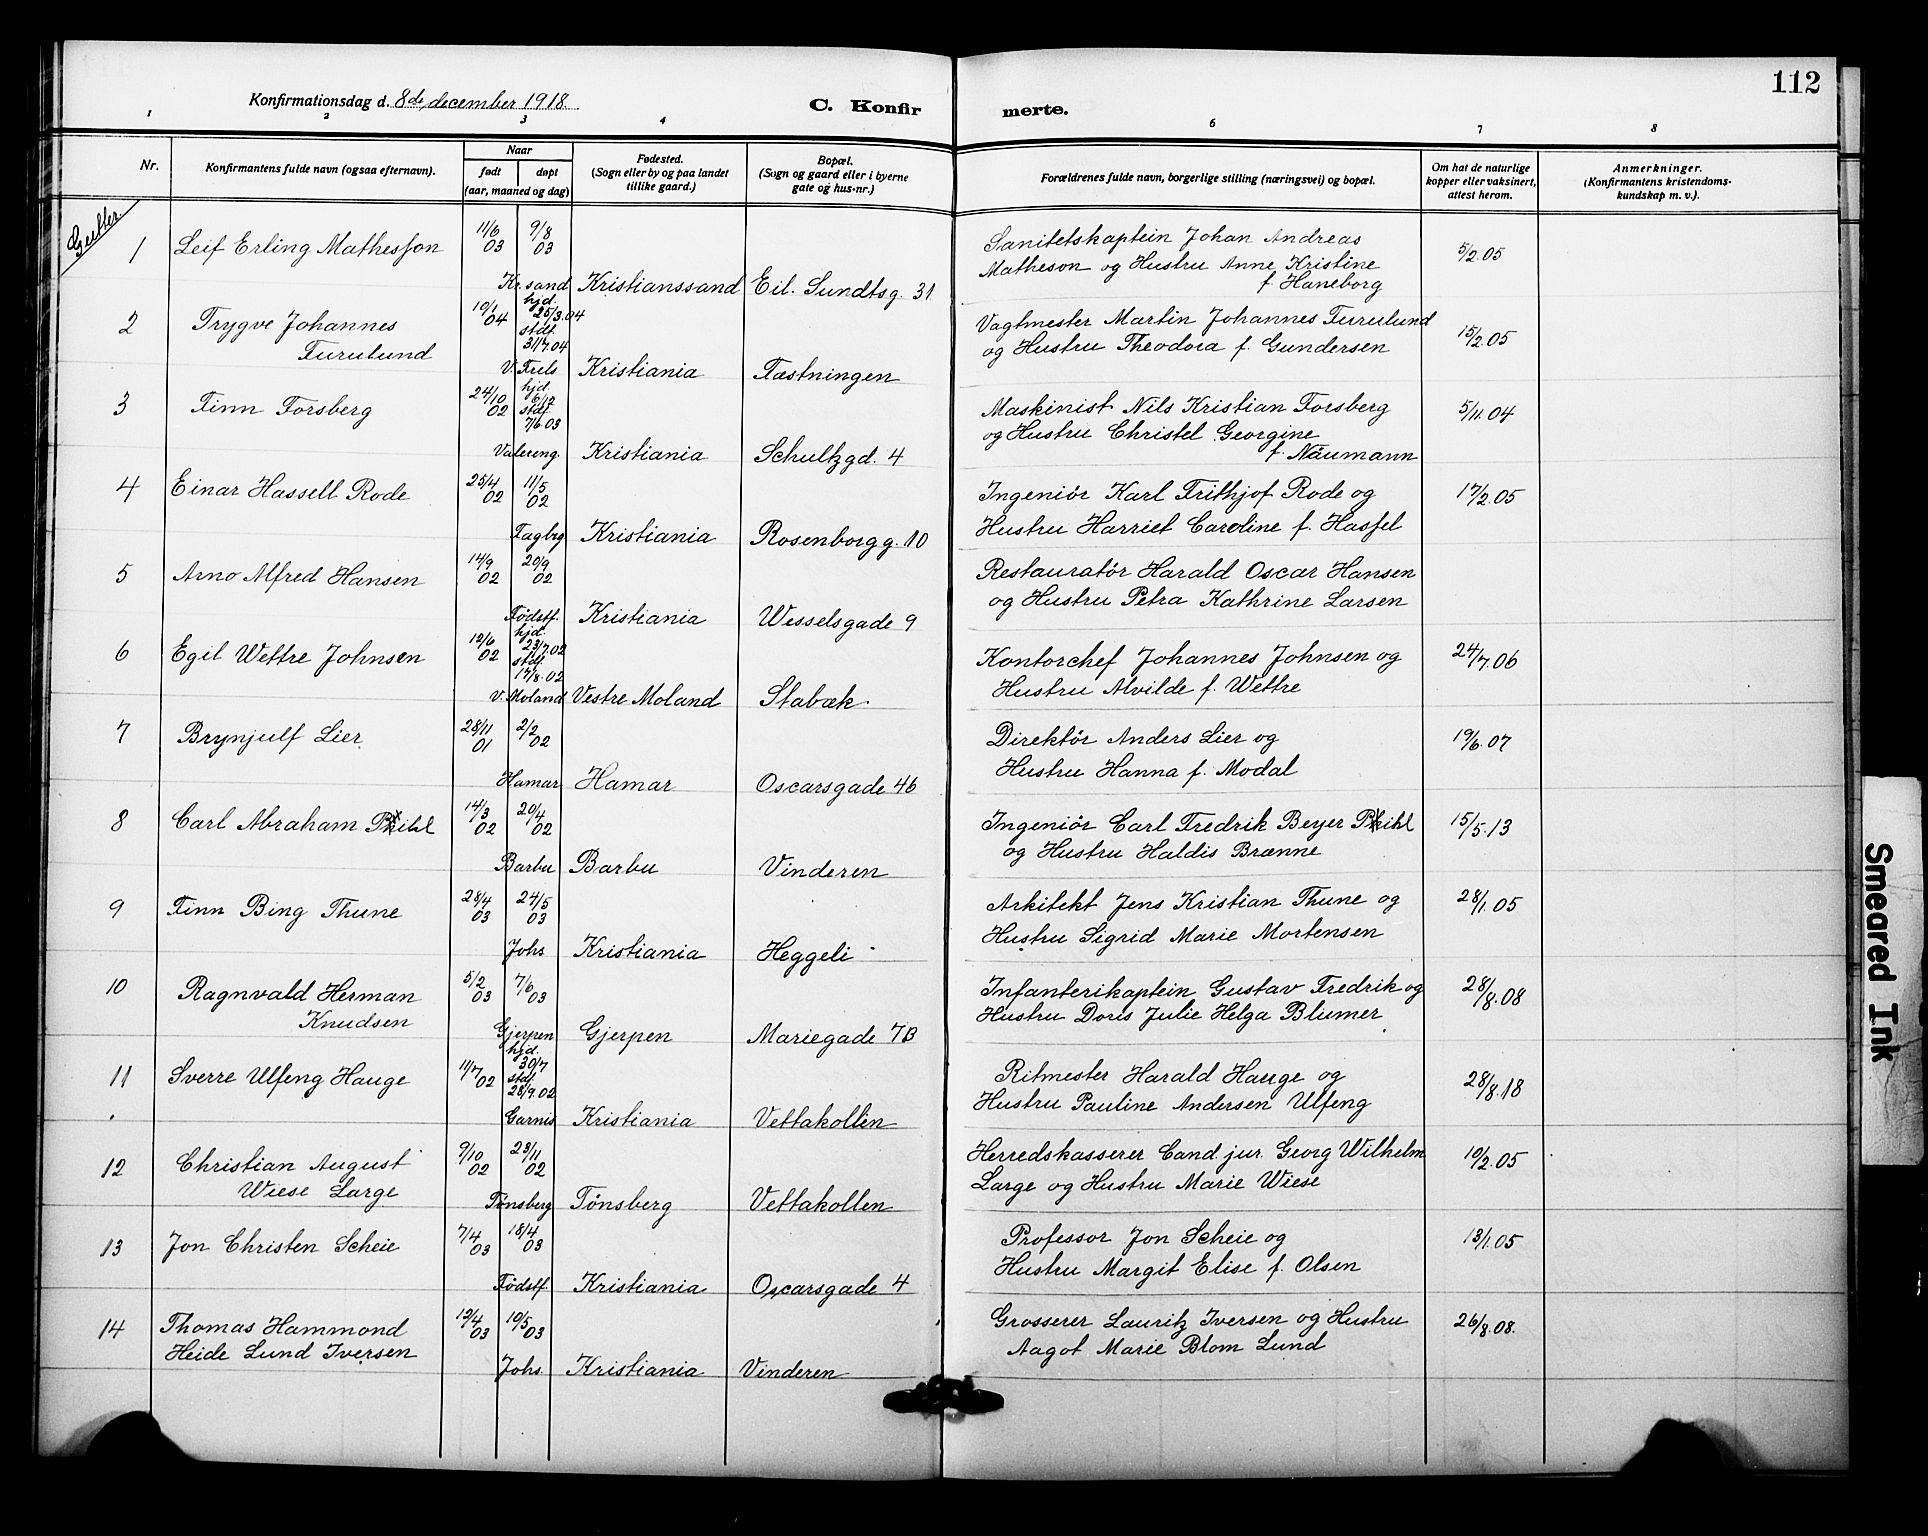 112
Konfirmationsdag d. 8de december 1918.
C. Konfir
merte.
1 2 3 4 5 6 7 8
Nr.
Konfirmantens fulde navn (ogsaa efternavn).
Naar
født
døpt
(aar, maaned og dag)
Fødested.
(Sogn eller by og paa landet
tillike gaard.)
Bopæl.
(Sogn og gaard eller i byerne
gate og hus-nr.)
Forældrenes fulde navn, borgerlige stilling (næringsvei) og bopæl.
Om hat de naturlige
kopper eller vaksinert,
attest herom.
Anmerkninger.
(Konfirmantens kristendoms-
kundskap m. v.).
Gutter.
1 Leif Erling Mathesson 11/6 03 9/8 03
Kr.sand Kristianssand Eil. Sundtsg. 31
Sanitetskaptein Johan Andreas
Matheson og Hustru Anne Kristine
f. Haneborg
5/2.05
2 Trygve Johannes
Furulund
10/1 04 hjd. 25/3.04
stdf. 31/7.04
V. Frels Kristiania Fæstningen
Vagtmester Martin Johannes Furulund
og Hustru Theodora f. Gundersen
15/2.05
3 Finn Forsberg 24/10 02 hjd. 6/12
stdf. 7/6.03
Vålereng. Kristiania Schultzgd. 4
Maskinist Nils Kristian Forsberg
og Hustru Christel Georgine
f. Näumann
5/11.04
4 Einar Hassell Rode 25/4 02 11/5 02
Fagbrg Kristiania Rosenborgg. 10
Ingeniör Karl Frithjof Rode og
Hustru Harriet Caroline f. Hassel
17/2.05
5 Arno Alfred Hansen 14/9 02 20/9 02
Födstf. Kristiania Wesselsgade 9
Restauratör Harald Oscar Hansen
og Hustru Petra Kathrine Larsen
6 Egil Wettre Johnsen 12/6 02 hjd. 23/7.02
stdf. 17/8.02
V. Moland Vestre Moland Stabæk.
Kontorchef Johannes Johnsen og
Hustru Alvilde f. Wettre
24/7.06
7 Brynjulf Lier 28/11 01 2/2 02
Hamar Hamar Oscarsgade 46
Direktör Anders Lier og
Hustru Hanna f. Modal
19/6.07
8 Carl Abraham Pihl 14/3 02 20/4 02
Barbu Barbu Vinderen
Ingeniör Carl Fredrik Beyer Pihl
og Hustru Haldis Brænne
15/5.13
9 Finn Bing Thune 28/4 03 24/5 03
Johs Kristiania Heggeli
Arkitekt Jens Kristian Thune og
Hustru Sigrid Marie Mortensen
28/1.05
10 Ragnvald Herman
Knudsen
5/2 03 7/6 03
Gjerpen Gjerpen Mariegade 7B
Infanterikaptein Gustav Fredrik og
Hustru Doris Julie Helga Blumer
28/8.08
11 Sverre Ulfeng Hauge 11/7 02 hjd. 30/7
stdf. 28/9.02
Garnis Kristiania Vettakollen
Ritmester Harald Hauge og
Hustru Pauline Andersen Ulfeng
28/8.18
12 Christian August
Wiese Large
9/10 02 23/11 02
Tönsberg Tönsberg Vettakollen
Herredskasserer Cand. jur. Georg Wilhelm
Large og Hustru Marie Wiese
10/2.05
13 Jon Christen Scheie 7/4 03 18/4 03
Födstf. Kristiania Oscarsgade 4
Professor Jon Scheie og
Hustru Margit Elise f. Olsen
13/1.05
14 Thomas Hammond
Heide Lund Iversen
12/4 03 10/5 03
Johs Kristiania Vinderen
Grosserer Lauritz Iversen og Hustru
Aagot Marie Blom Lund
26/8.08.
Smeared Ink